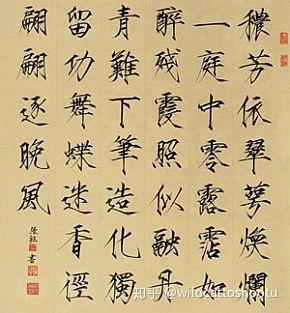 穠芳依翠萼煥爛
一庭中零露霑如
醉殘霞照似融丹
青難下筆造化獨
留功舞蝶迷香徑
翩翩逐晚風
張 書
知乎 @wildcattoshootu